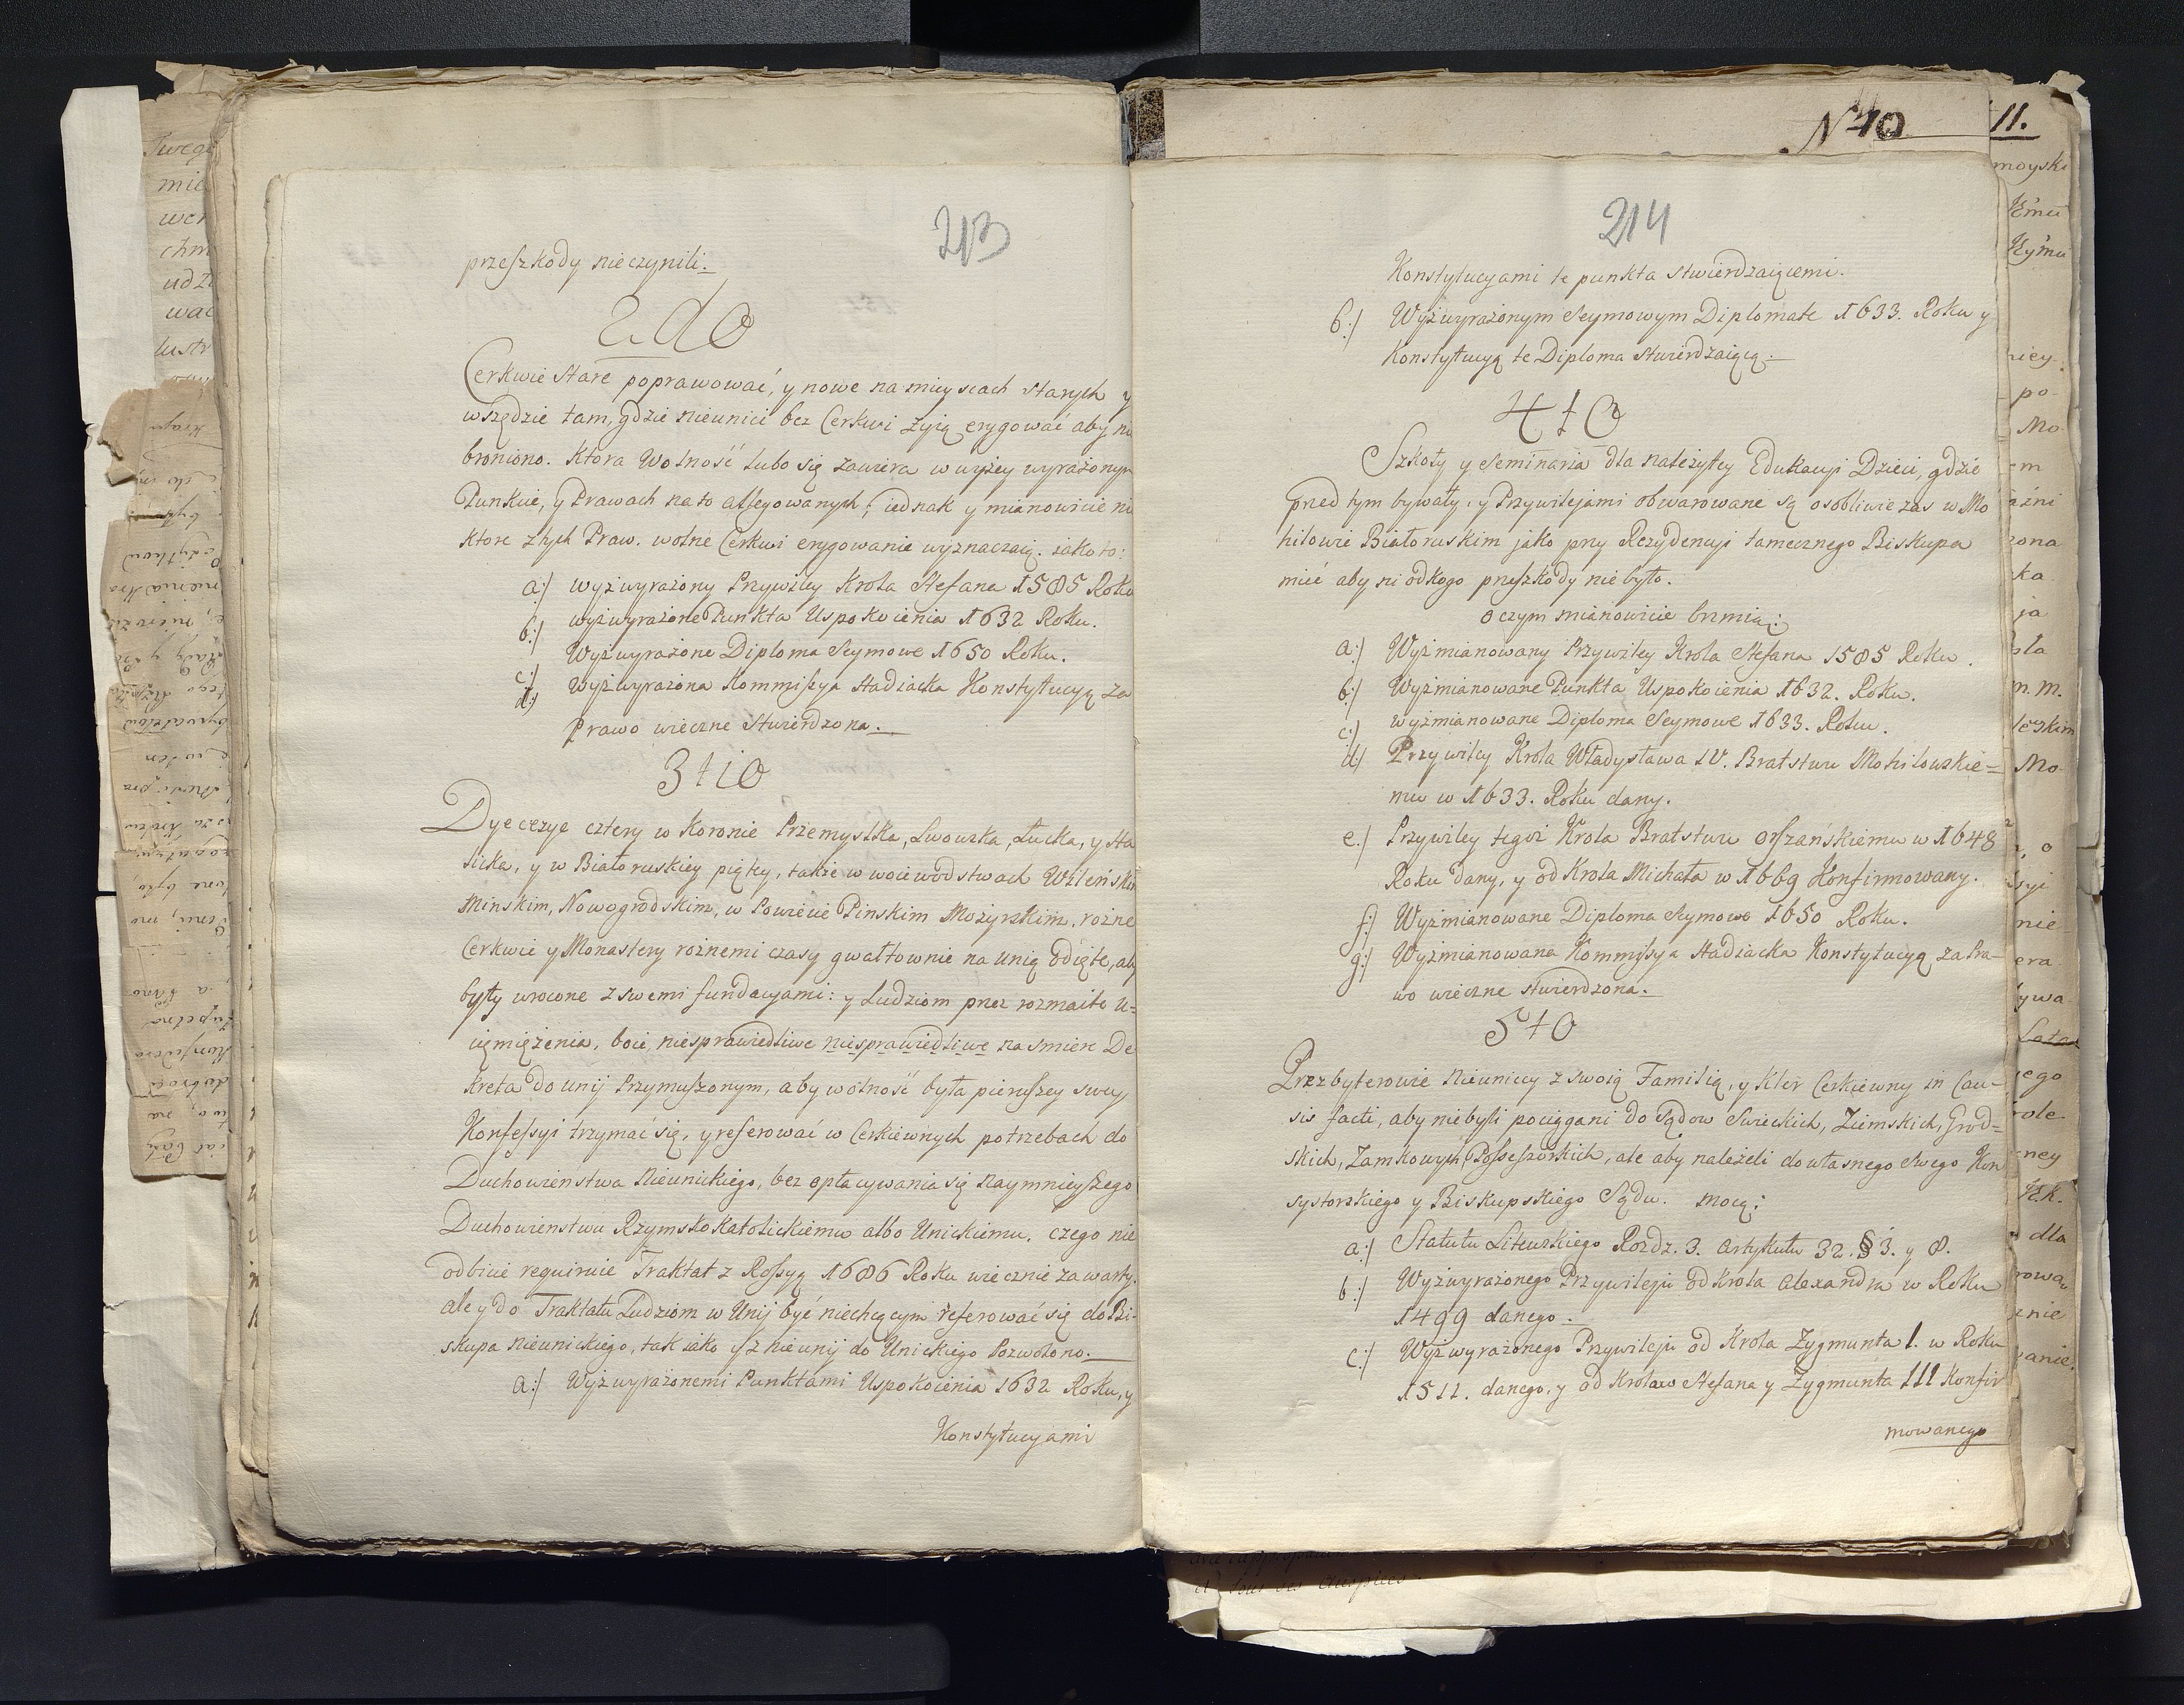 213
przeszkody nieczynili.
2do
Cerkwie stare poprawować, y nowe na mieyscach starych y
wszędzie tam, gdzie nieunici bez Cerkwi żyią erygować aby nie
broniono. Ktora Wolność lubo się zawiera w wyżey wyrażonym
Punkcie, y Prawach na to allegowanych; iednak y mianowicie nie
ktore z tych Praw. wolne Cerkwi erygowanie wyznaczaią. iako to:
a:/ wyżwyrażony Przywiley Krola Stefana 1585 Roku
b:/ wyżwyrażone Punkta Uspokoienia 1632 Roku.
c:/ Wyżwyrażone Diploma Seymowe 1650 Roku.
d:/ Wyżwyrażona Kommissya Hadiacka Konstytucyą za
Prawo wieczne stwierdzona.
3tio
Dyecezye cztery w Koronie Przemyslka, Lwowska, Łucka, y Ha
licka, y w Białoruskiey piątey, także w woiewodstwach Wileńskim
Minskim, Nowogrodskim, w Powiecie Pinskim Mozyrskim, rożne
Cerkwie y Monastery rożnemi czasy gwałtownie na Unią odięte, aby
były wrocone z swemi fundacyami: y Ludziom przez rozmaite u=
ciemiężenia, boie niesprawiedliwe niesprawiedliwe na smierc De
kreta do Unij Przymuszonym, aby wolność była pierwszey swey
Konfessyi trzymać się, y referować w Cerkiewnych potrzebach do
Duchowieństwa Nieunickiego, bez opłacywania się naymnieyszego
Duchowieństwu Rzymsko Katolickiemu albo Unickiemu. czego nie
odbicie requiruie Traktat z Rossyą 1686 Roku wiecznie zawarty.
ale y do Traktatu Ludziom w Unij być niechcącym referować się do Bi-
skupa nieunickiego, tak iako y z nieunij do Unickiego Pozwolono.
a:/ Wyżwyrażonemi Punktami Uspokoienia 1632 Roku, y
Konstytucyami
No 10
214
Konstytucyami te punkta stwierdzaiącemi.
b:/ Wyżwyrażonym Seymowym Diplomate 1633. Roku y
Konstytucyą te Diploma stwierdzaiącą.
4to
Szkoły y Seminaria dla należytey Edukacyi Dzieci, gdzie
przed tym bywały, y Przywilejami obwarowane są osobliwie zas w Mo
hilowie Białoruskim jako przy Rezydencyi tamecznego Biskupa
mieć aby ni od kogo przeszkody nie było.
o czym mianowicie brzmią:
a:/ Wyżmianowany Przywiley Krola Stefana 1585 Roku.
b:/ Wyżmianowane Punkta Uspokoienia 1632. Roku.
c:/ wyżmianowane Diploma Seymowe 1633. Roku.
d:/ Przywiley Krola Władysława IV. Bratstwu Mohilowskie=
mu w 1633. Roku dany.
e:/ Przywiley tegoż Krola Bratstwu Orszańskiemu w 1648
Roku dany, y od Krola Michała w 1669 Konfirmowany.
f:/ Wyżmianowane Diploma Seymowe 1650 Roku.
g:/ Wyżmianowana Kommissya Hadiacka Konstytucyą za Pra-
wo wieczne stwierdzona.
5to
Prezbyterowie Nieuniccy z swoią Familią, y Kler Cerkiewny in Cau-
sis facti, aby niebyli pociągani do Sądow Swieckich, Ziemskich, Grod=
skich, Zamkowych, Possessorskich, ale aby należeli do własnego swego Kon
systorskiego y Biskupskiego Sądu. mocą:
a:/ Statutu Litewskiego Rozdz. 3. Artykułu 32. § 3. y 8.
b:/ Wyżwyrażonego Przywileju od Krola Alexandra w Roku
1499 danego.
c:/ Wyżwyrażonego Przywileju od Krola Zygmunta I. w Roku
1511. danego, y od Krolow Stefana y Zygmunta III Konfir
mowanego
11.